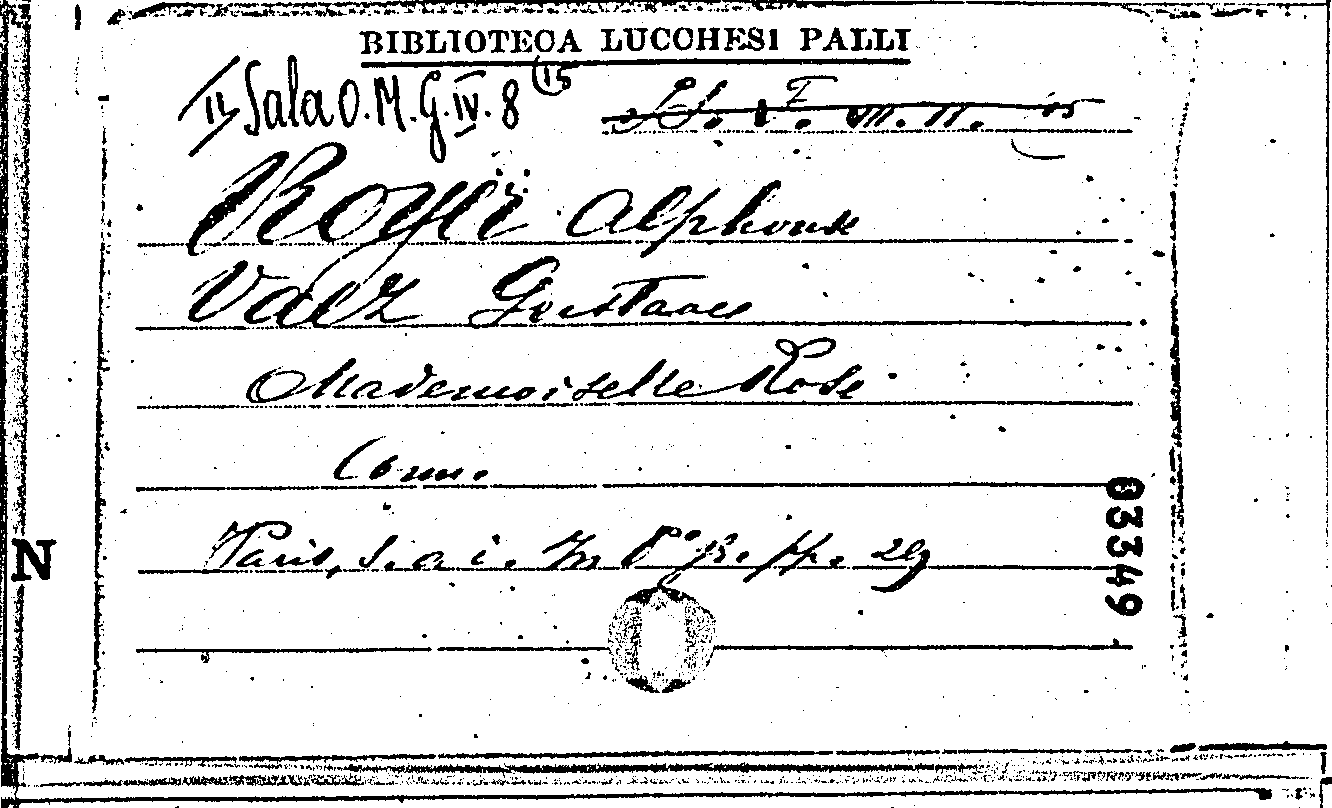 BIBLIOTECA LUCCHESI PALLI
II Sala O. M. G. IV. 8 (15
VII. II. 15
Royer Alphonse
Vaez Gustave
Mademoiselle Rose
Com.
Paris, s. a. i. In 8° gr. pp. 29
N
03349